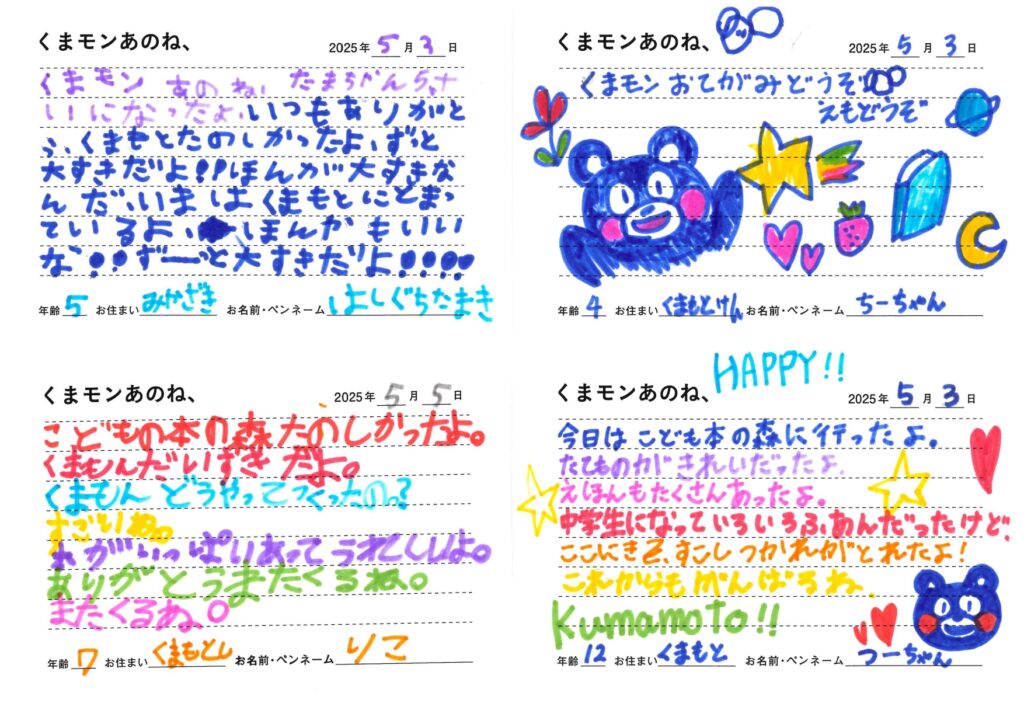 くまモンあのね、
2025年 5 月 3 日
くまモン あのね、たまちゃん5さ
いになったよ、いつもありがと
う、くまもとたのしかったよ、ずっと
大すきだよ!!ほんが大すきな
んだ、いまはくまもとにとまっ
ているよ、ほんかもいい
な!!ずーっと大すきだよ!!!!
年齢 5 お住まい みやざき お名前・ペンネーム はしぐちたまき
くまモンあのね、
2025年 5 月 3 日
くまモン おてがみどうぞ
えもどうぞ
年齢 4 お住まい くまもとけん お名前・ペンネーム ちーちゃん
くまモンあのね、
2025年 5 月 5 日
こどもの本の森たのしかったよ。
くまもんだいすきだよ。
くまもんどうやってつくったの?
すごいね。
木がいっぱいあってうれしいよ。
ありがとうまたくるね。
またくるね。
年齢 7 お住まい くまもとし お名前・ペンネーム りこ
HAPPY!!
くまモンあのね、
2025年 5 月 3 日
今日はこども本の森に行ったよ。
たてものがきれいだったよ。
えほんもたくさんあったよ。
中学生になっていろいろふあんだったけど、
ここにきて、すこしつかれがとれたよ!
これからもがんばるね。
Kumamoto!!
年齢 12 お住まい くまもと お名前・ペンネーム つーちゃん